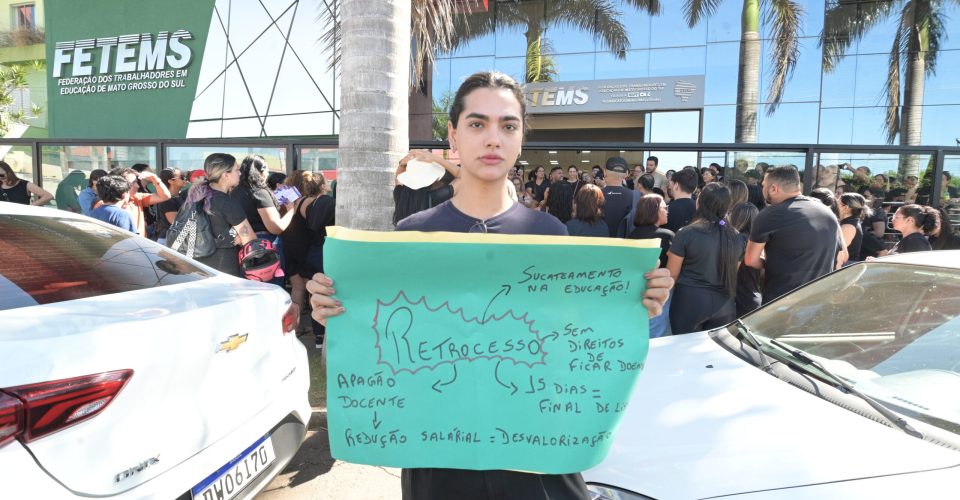 FETEMS
FEDERAÇÃO DOS TRABALHADORES EM
EDUCAÇÃO DE MATO GROSSO DO SUL
FETEMS
SUCATEAMENTO
NA EDUCAÇÃO!
RETROCESSO
SEM
DIREITOS
DE
FICAR
APAGÃO
DOCENTE
15 DIAS =
FINAL DE
REDUÇÃO SALÁRIAL = DESVALORIZAÇÃO
ONIX